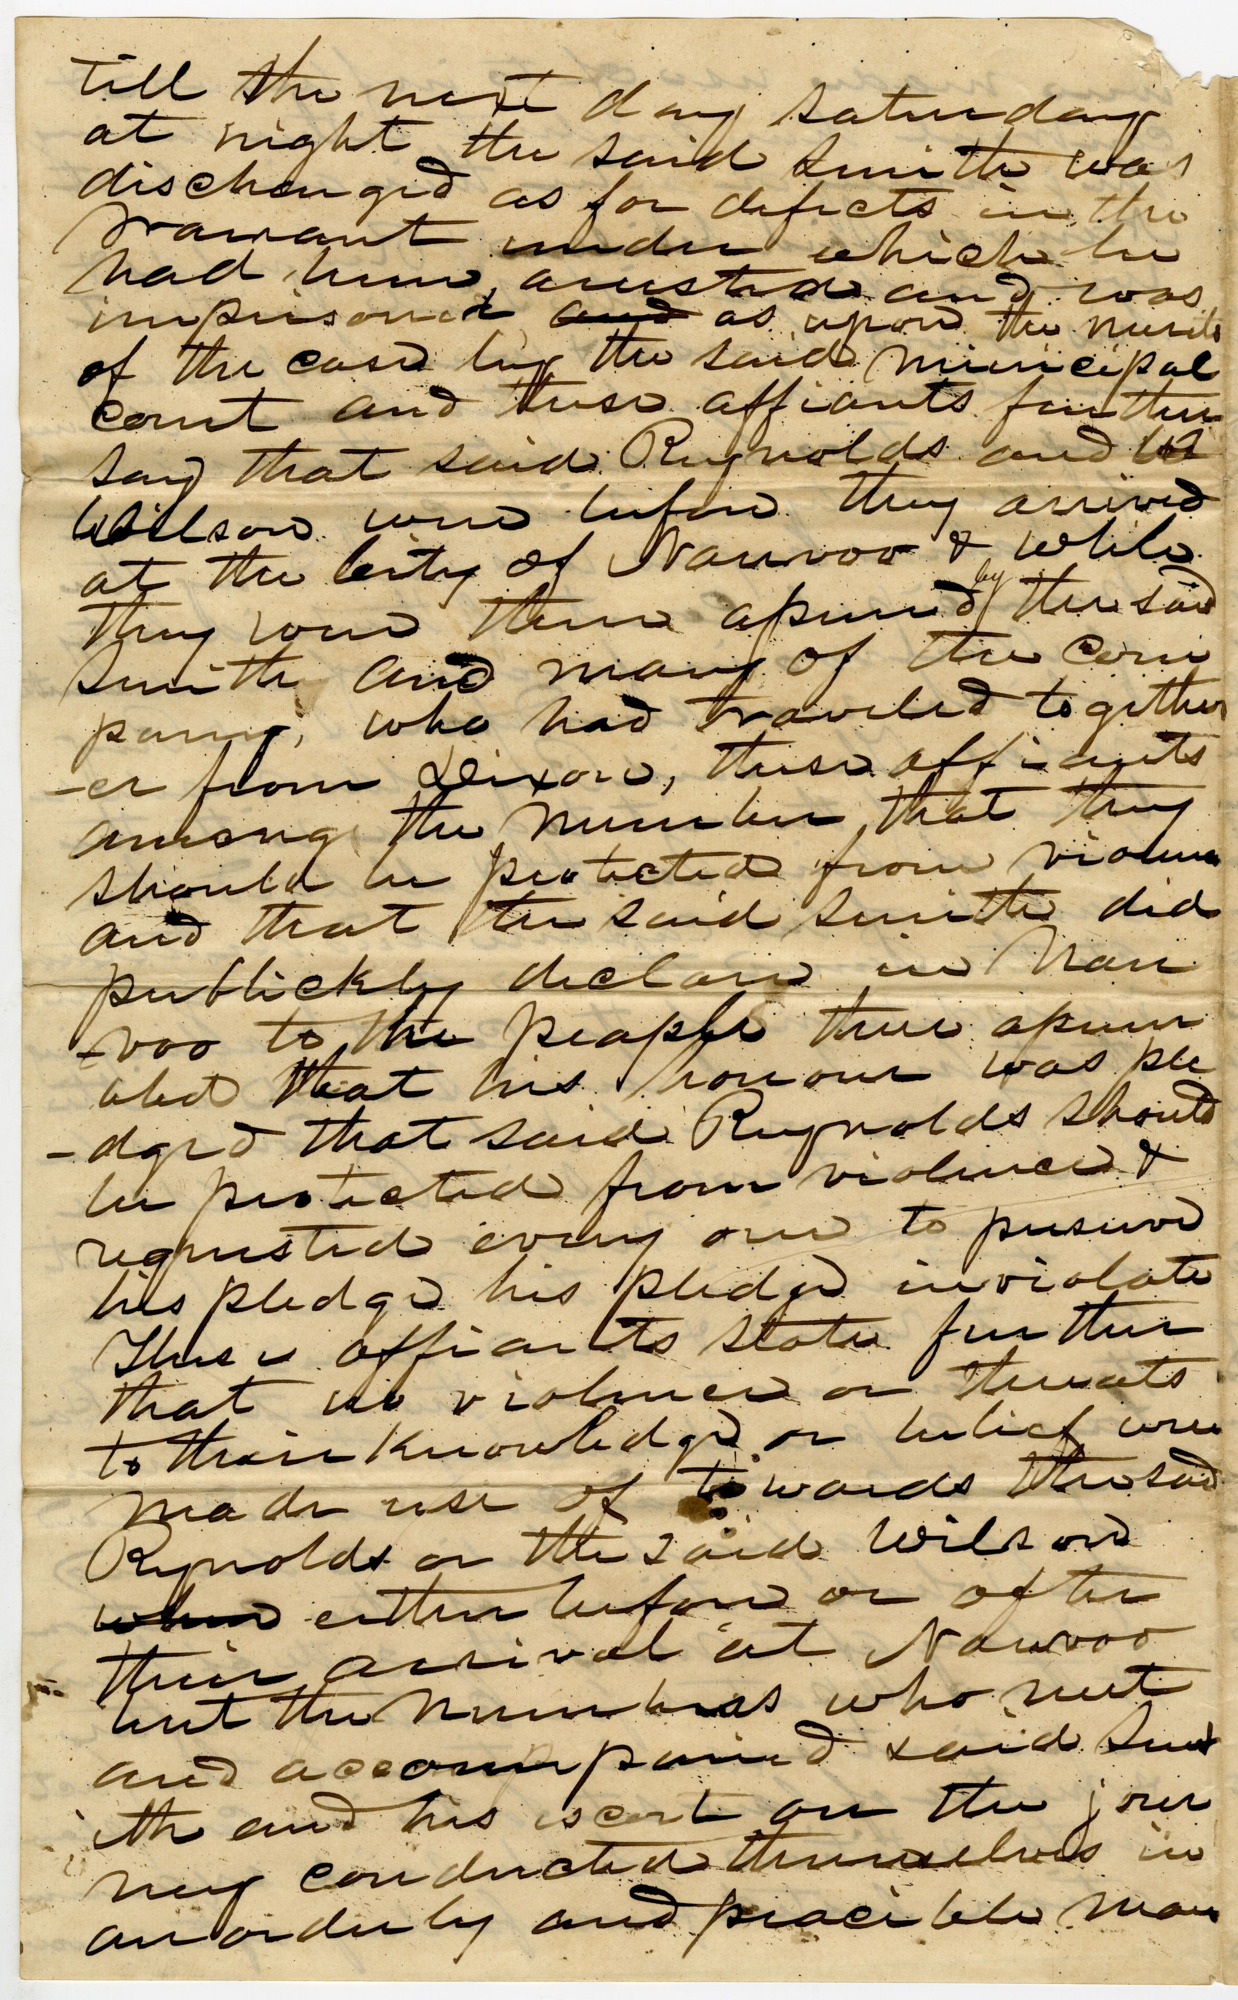 till the next day saturday
at night the said Smith was
discharged as for defects in the
warrant under which he
had been arrested and was
imprisoned and as upon the merits
of the case by the said Municipal
court and these affiants further
say that said Reynolds and Wi
Wilson were before they arrived
at the City of Nauvoo & while
they were there assured by the said
Smith and many of the com
pany, who had traveled together
-er from Dixon, these affiants
among the number, that they
should be protected from violence
and that the said Smith did
publickly declare in Nau
-voo to the people there assem
bled that his honour was ple
-dged that said Reynolds should
be protected from violence &
requested every one to preserve
his pledge his pledge inviolate
These affiants state further
that no violence or threats
to their knowledge or belief were
made use of towards the said
Reynolds or the said Wilson
when either before or after
their arrival at Nauvoo
but the numbers who met
and accompanied said Smi
ith and his escort on the jour
ney conducted themselves in
an orderly and peacible man